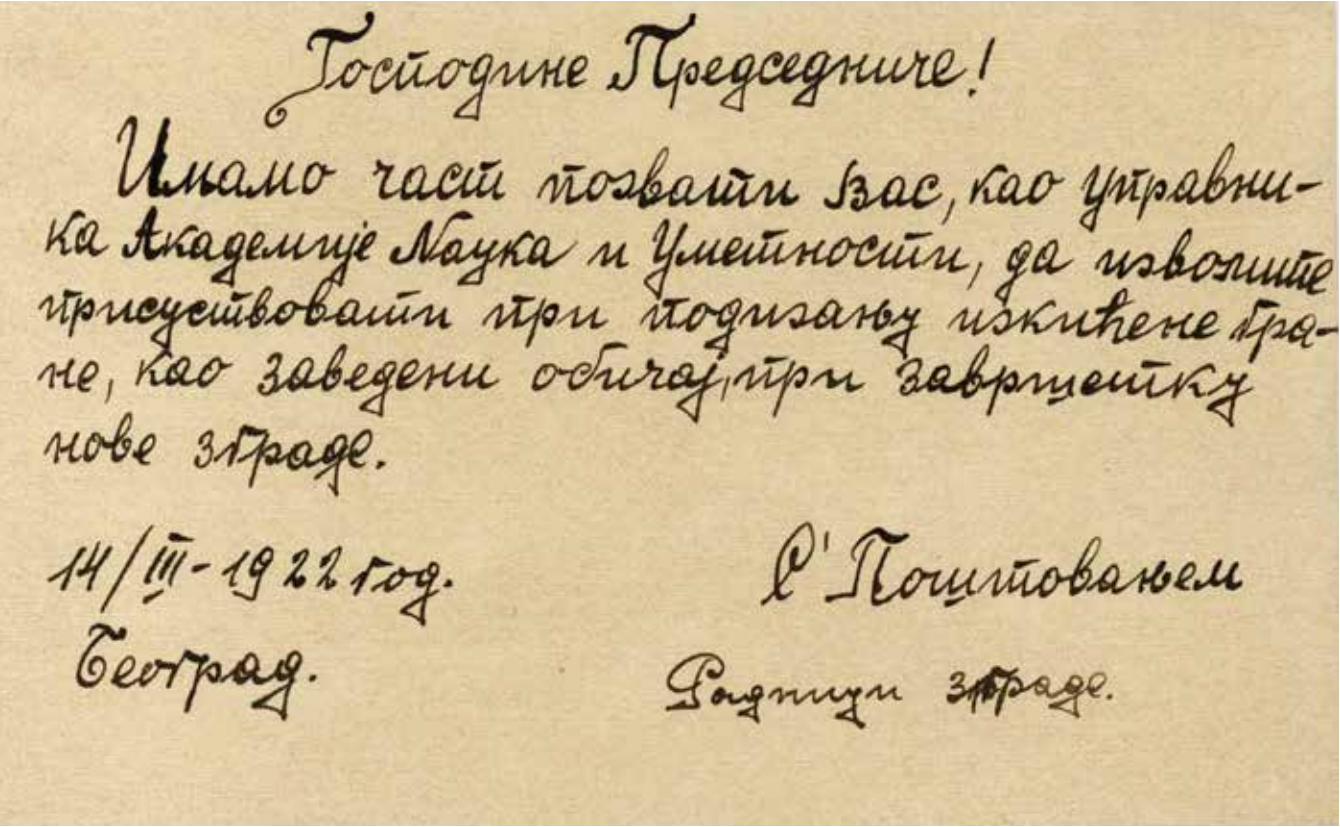 Господине Председниче!
Имамо част позвати Вас, као управни-
ка Академије Наука и Уметности, да изволите
присуствовати при подизању изкићене гра-
не, као заведени обичај, при завршетку
нове зграде.
14/III-1922 год.
С' Поштовањем
Београд.
Радници зграде.